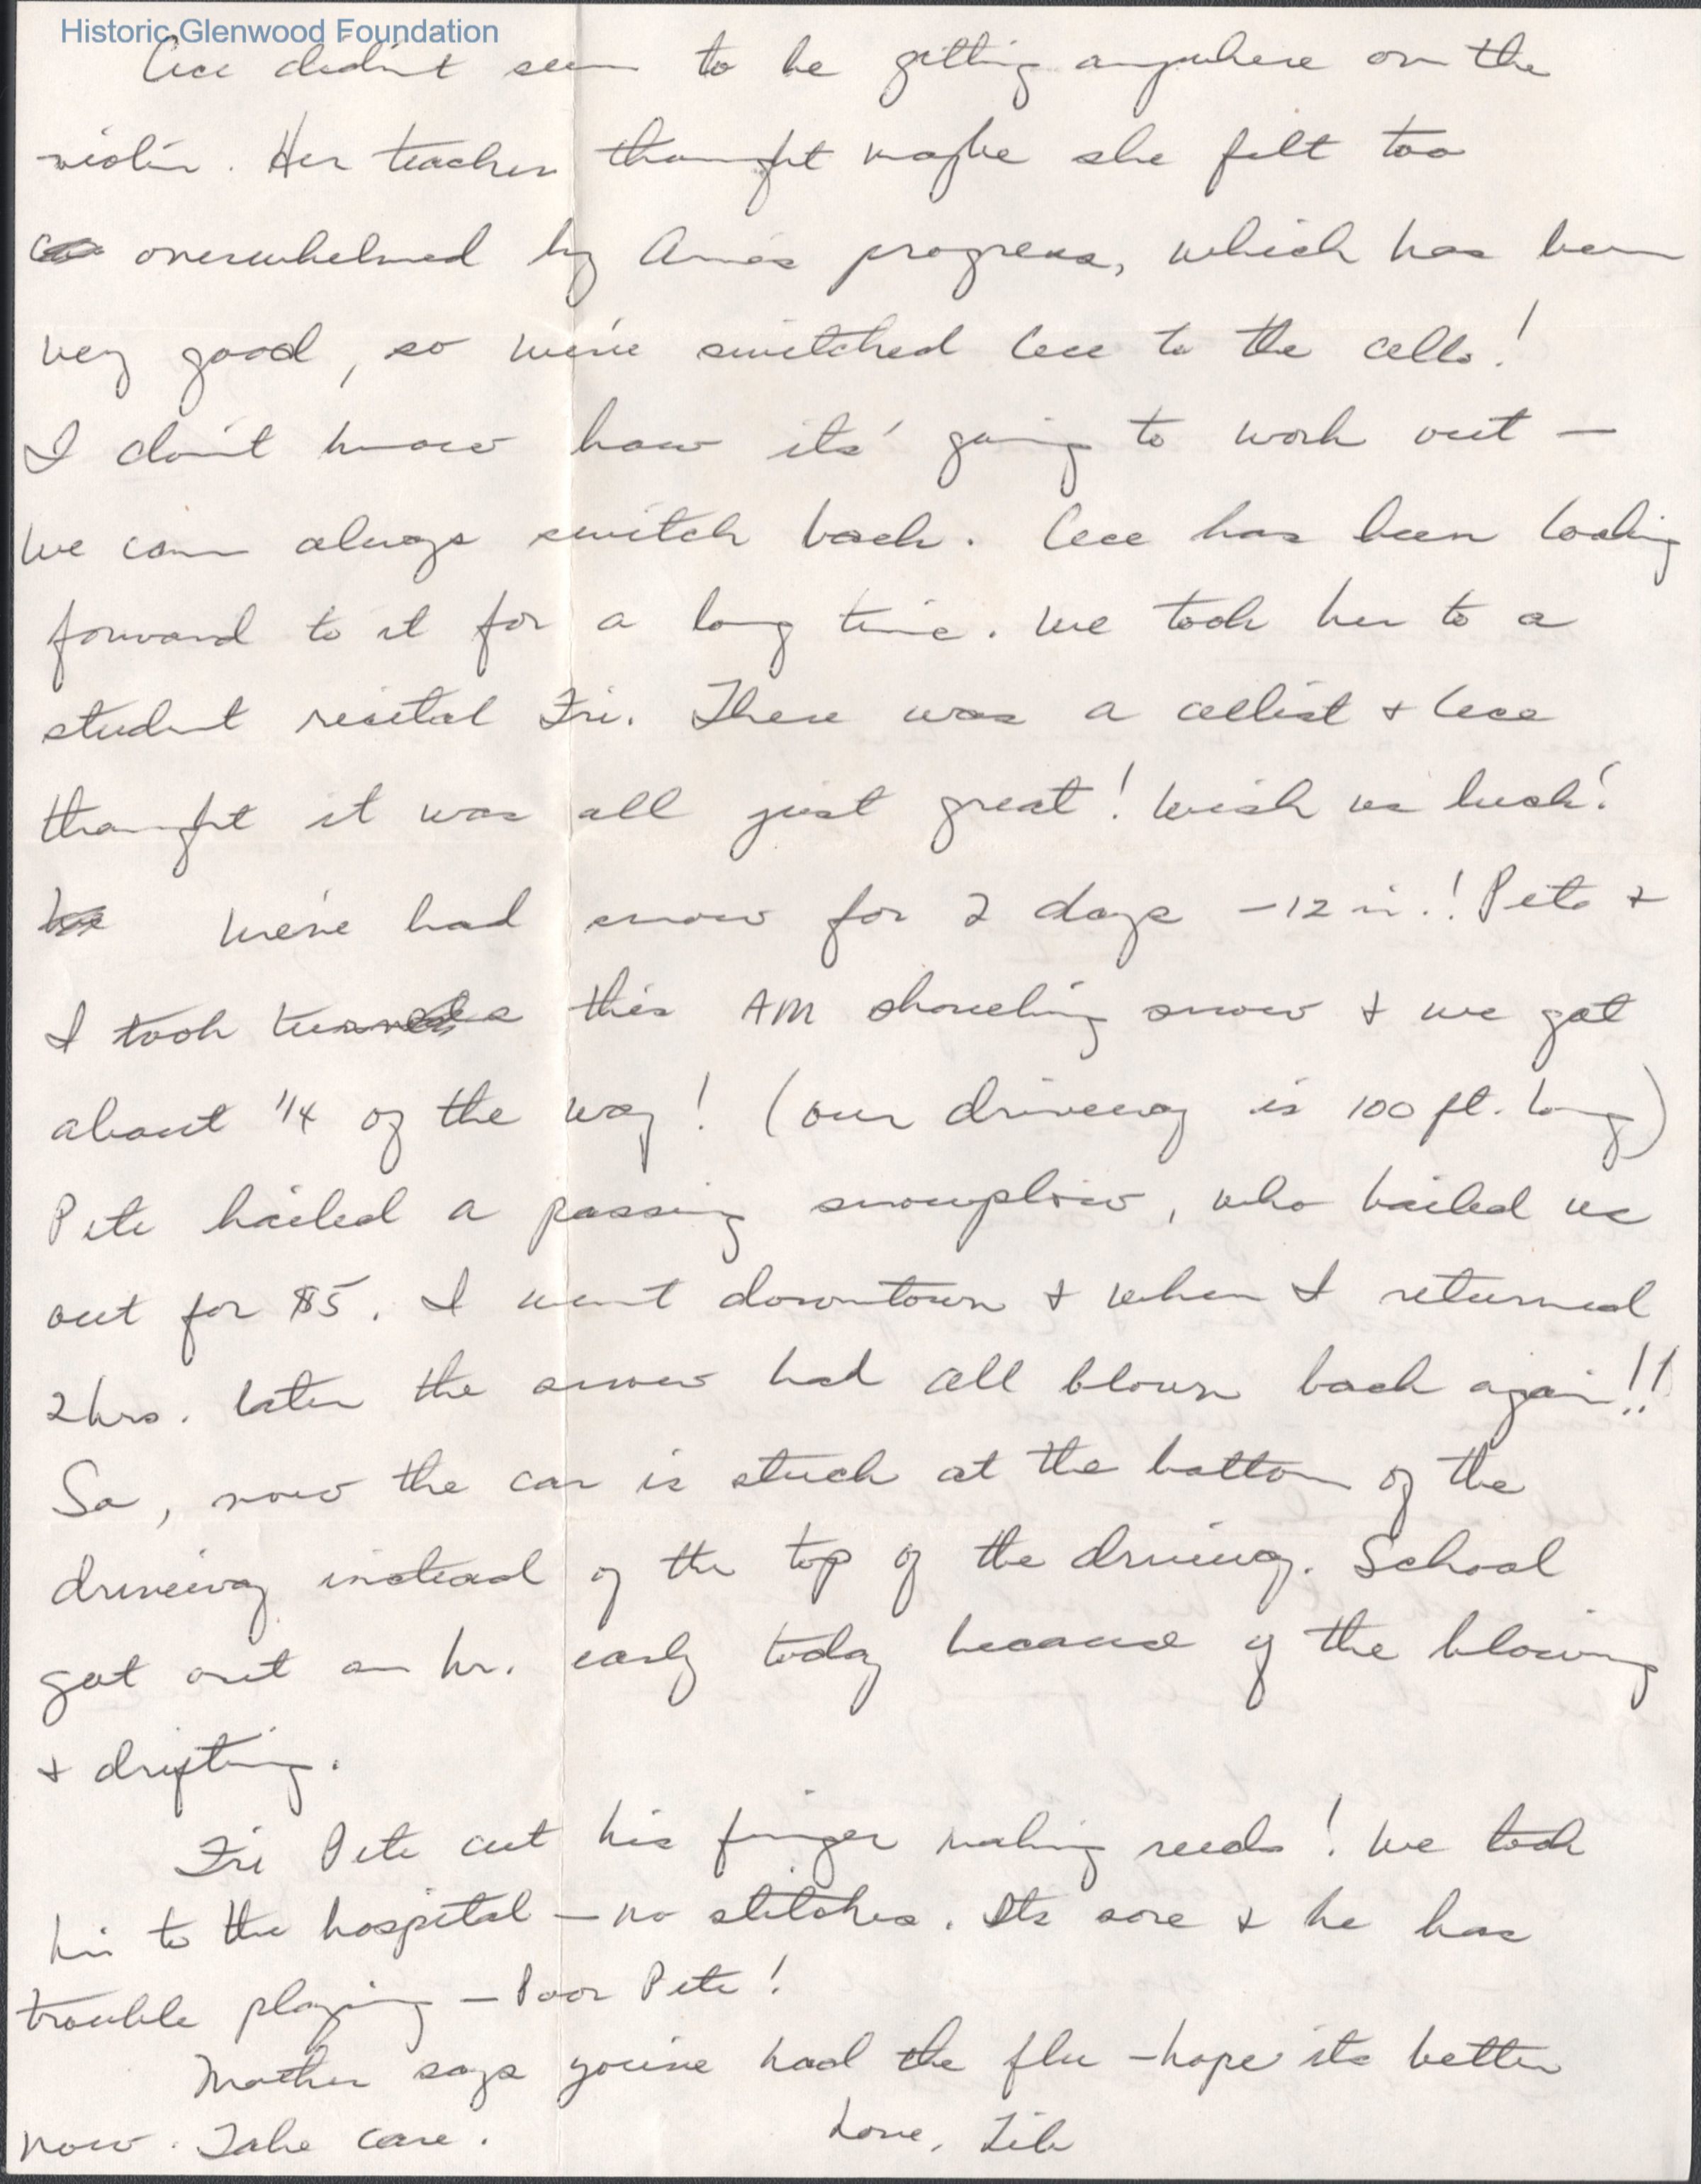 Historic Glenwood Foundation
Cece didn't seem to be getting anywhere on the
violin. Her teacher thought maybe she felt too
overwhelmed by Ana's progress, which has been
very good, so we've switched Cece to the cello!
I don't know how its' going to work out —
We can always switch back. Cece has been looking
forward to it for a long time. We took her to a
student recital Fri. There was a cellist & Cece
thought it was all just great! Wish us luck!
We've had snow for 2 days - 12 in.! Pete &
I took turns this AM shoveling snow & we got
about 1/4 of the way! (our driveway is 100 ft. long)
Pete hailed a passing snowplow, who bailed us
out for $5. I went downtown & when I returned
2 hrs. later the snow had all blown back again!!
So, now the car is stuck at the bottom of the
driveway instead of the top of the driveway. School
got out an hr. early today because of the blowing
& drifting.
Fri Pete cut his finger making reeds! We took
him to the hospital — no stitches. Its sore & he has
trouble playing — Poor Pete!
Mother says you've had the flu - hope its better
now. Take care.
Love, Lib